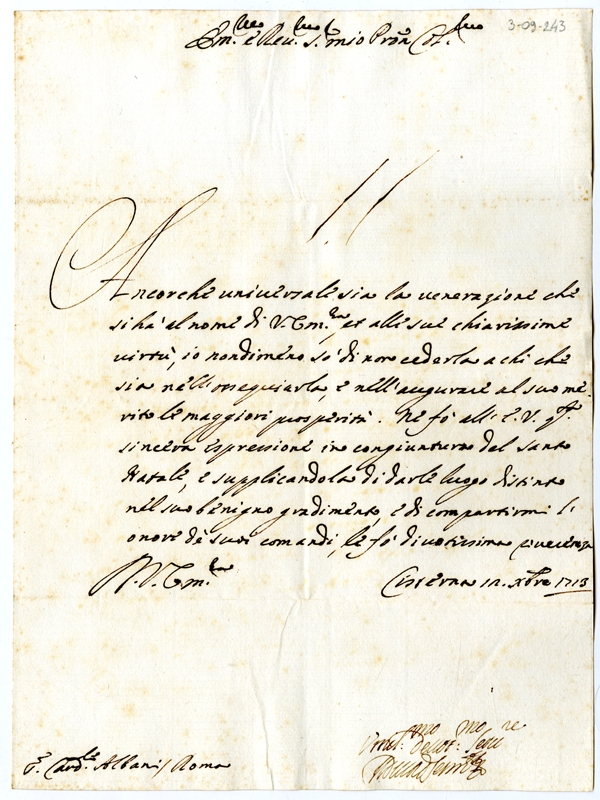 3-09-243
Em.mo e Reu.mo S.r mio Pron Col.mo
Ancorche universale sia la venerazione che
si hà al nome di V. Em.za, et alle sue chiarissime
virtù, io nondimeno sò di non cederla a chi che
sia nell'ossequiarla, e nell'augurare al suo me
rito le maggiori prosperità. Ne fò all'E.V.
sincera espressione in congiuntura del Santo
Natale, e supplicandola di darle luogo distinto
nel suo benigno gradimento, e di compartirmi l'
onore dè suoi comandi, le fò divotissima riverenza
Di V. Em.za Cisterna 12. Xbre 1713
S.r Card.le Albani / Roma
Vmil.mo Deuot.mo Ser.re